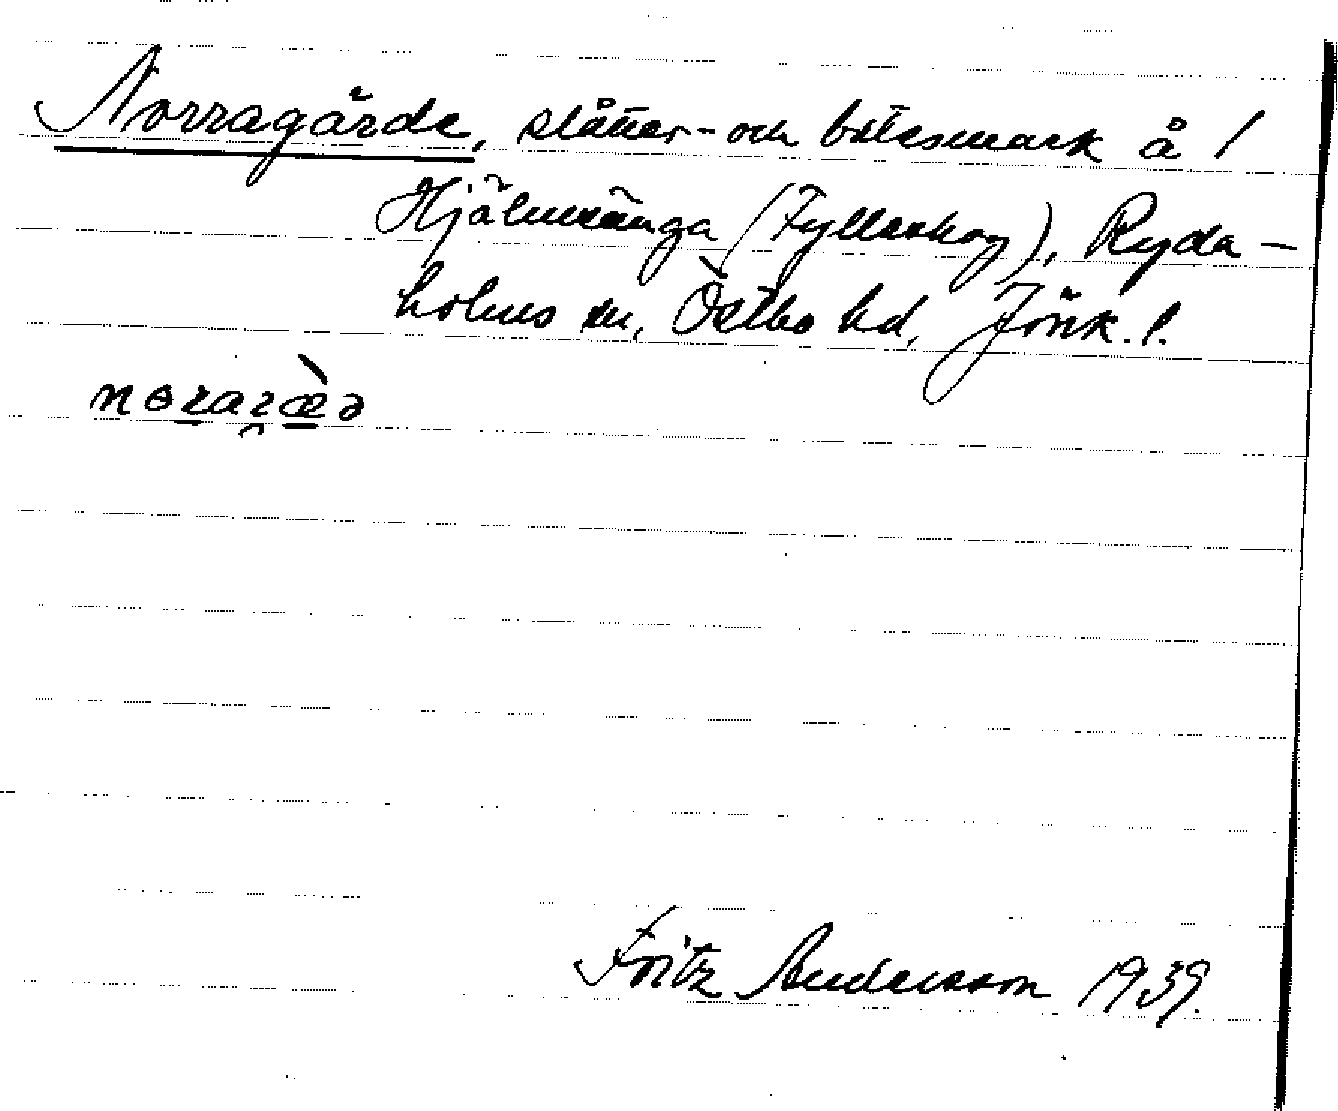 Norragärde, slåtter- och betesmark å /
Hjälmsänga (Fylleskog), Ryda-
holms sn, Östbo hd, Jönk. l.
Fritz Andersson 1939.